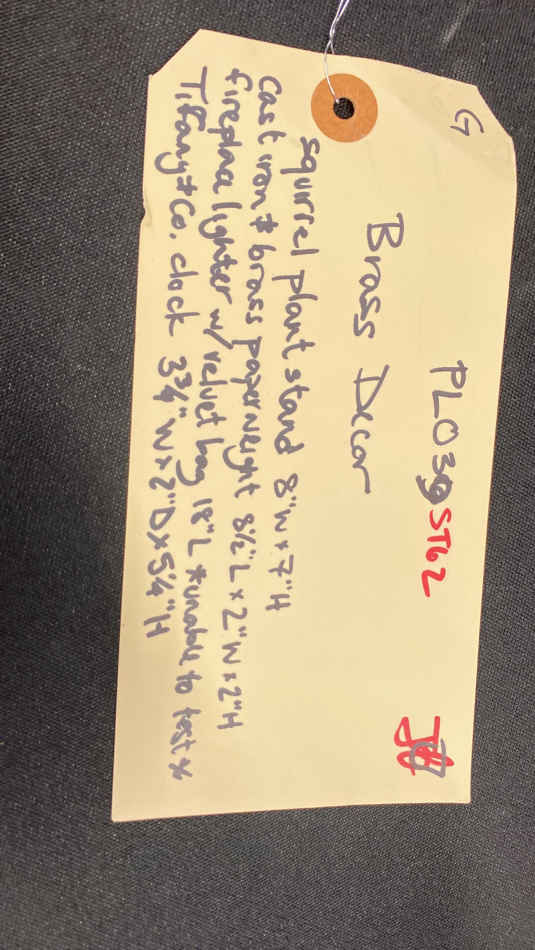 G
PL039 ST62
Brass Decor
squirrel plant stand 8"W x 7"H
Cast iron & brass paperweight 8½"L x 2"W x 2"H
fireplace lighter w/ velvet bag 18"L *unable to test*
Tiffany & Co. clock 3¾"W x 2"D x 5¼"H